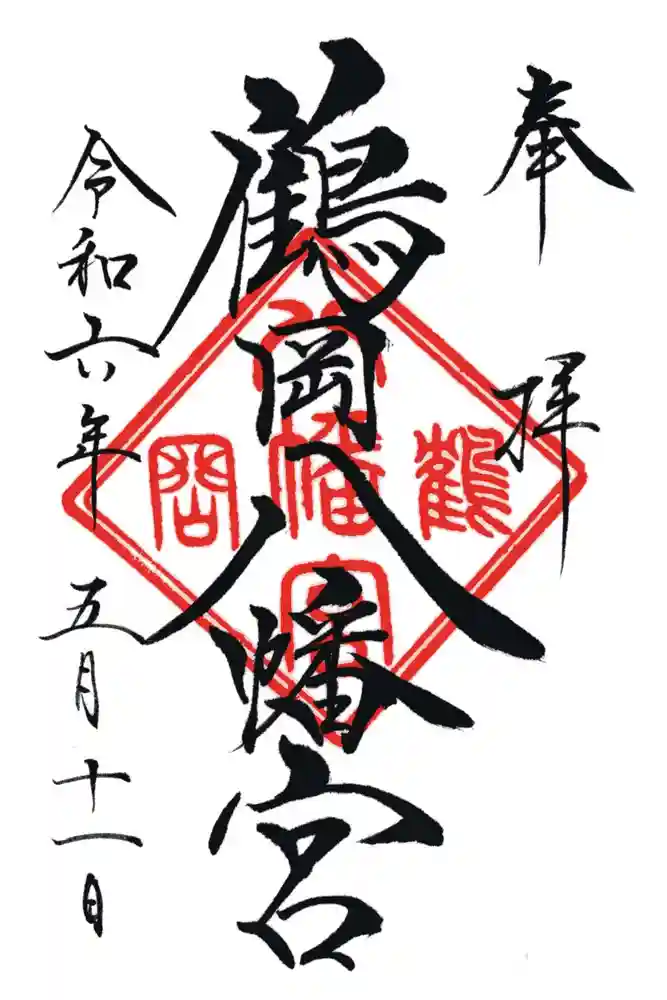 奉拝
鶴岡八幡宮
令和六年五月十一日
鶴岡八幡宮